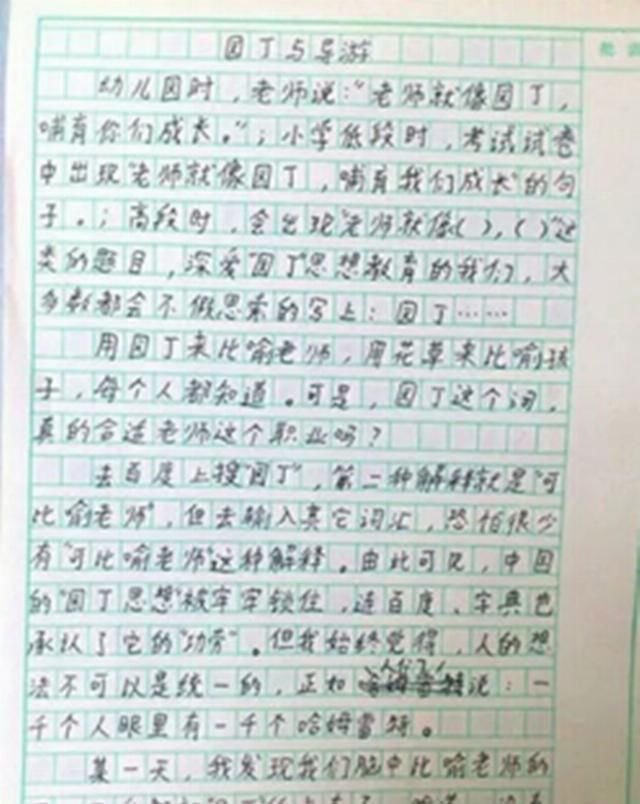 园丁与导游
幼儿园时，老师说：“老师就像园丁，
哺育你们成长。”；小学低段时，考试试卷
中出现“老师就像园丁，哺育我们成长”的句
子。；高段时，会出现“老师就像（），（）”这
类的题目，深爱“园丁”思想教育的我们，大
多数都会不假思索的写上：园丁……
用园丁来比喻老师，用花草来比喻孩
子，每个人都知道。可是，园丁这个词，
真的合适老师这个职业吗？
去百度上搜“园丁”，第二种解释就是“可
比喻老师”，但去输入其它词汇，恐怕很少
有“可比喻老师”这种解释。由此可见，中国
的“园丁思想”被牢牢锁住，连百度、字典也
承认了它的“功劳”。但我始终觉得，人的想
法不可以是统一的，正如人们说：一
千个人眼里有一千个哈姆雷特。
某一天，我发现我们脑中比喻老师的